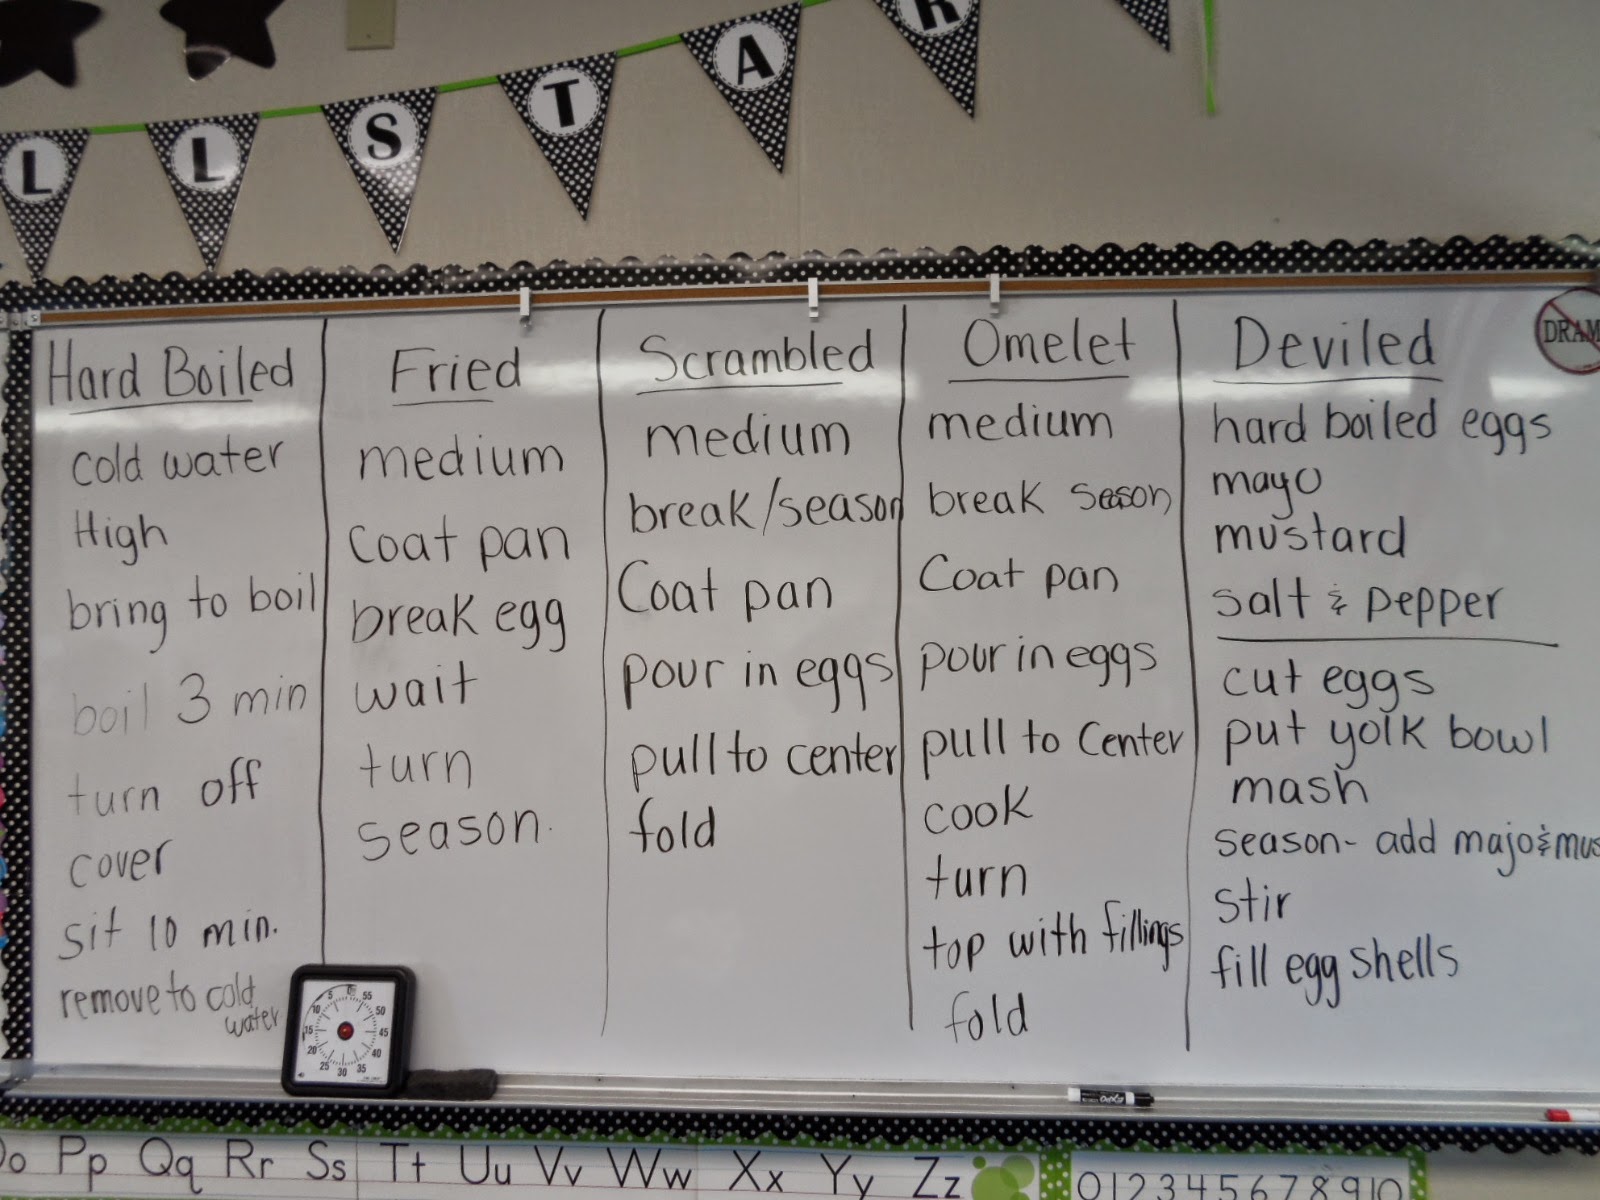 L L S T A R
Hard Boiled
cold water
High
bring to boil
boil 3 min
turn off
cover
sit 10 min.
remove to cold
water
Fried
medium
Coat pan
break egg
wait
turn
season.
Scrambled
medium
break/season
Coat pan
pour in eggs
pull to center
fold
Omelet
medium
break season
Coat pan
pour in eggs
pull to Center
cook
turn
top with fillings
fold
Deviled
hard boiled eggs
mayo
mustard
salt & pepper
cut eggs
put yolk bowl
mash
season- add majo & mus
stir
fill egg shells
DRAM
5 55
10 50
15 45
20 40
25 30 35
EXPO
Oo Pp Qq Rr Ss Tt Uu Vv Ww Xx Yy Zz
0 1 2 3 4 5 6 7 8 9 10